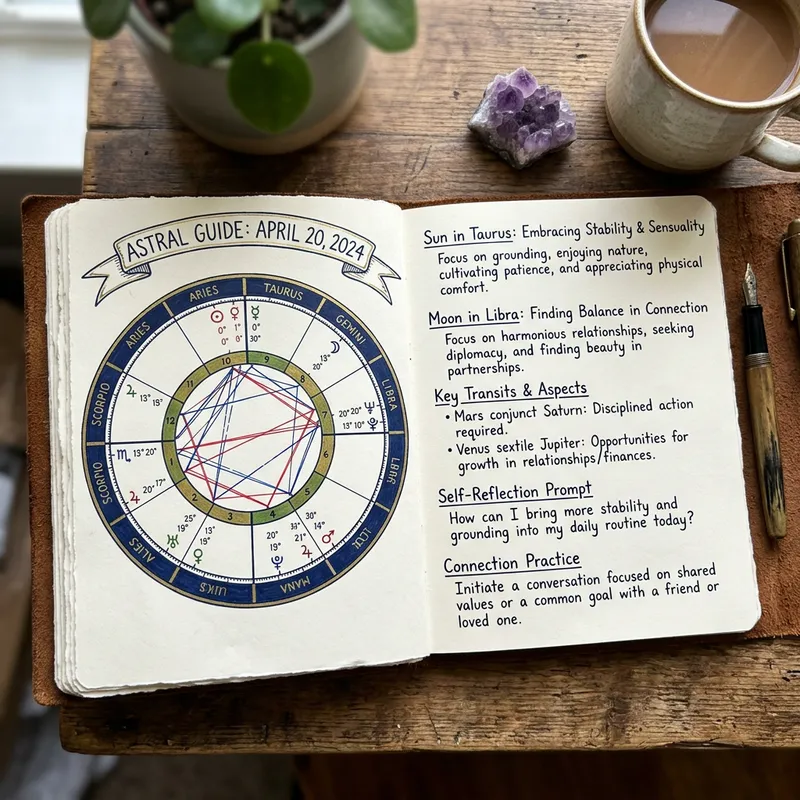 ASTRAL GUIDE: APRIL 20, 2024
ARIES
TAURUS
ARIES
GEMINI
SCORPIO
LIBRA
SCORPIO
0° 1° 0°
0° 0° 30°
20° 13°
13° 19°
20° 20°
13° 10°
13° 20°
20° 17°
25°
19°
13°
19°
20°
19°
33°
21°
30°
14°
10
9
11
8
12
7
1
6
2
5
3
4
Sun in Taurus: Embracing Stability & Sensuality
Focus on grounding, enjoying nature,
cultivating patience, and appreciating physical
comfort.
Moon in Libra: Finding Balance in Connection
Focus on harmonious relationships, seeking
diplomacy, and finding beauty in
partnerships.
Key Transits & Aspects
• Mars conjunct Saturn: Disciplined action
required.
• Venus sextile Jupiter: Opportunities for
growth in relationships/finances.
Self-Reflection Prompt
How can I bring more stability and
grounding into my daily routine today?
Connection Practice
Initiate a conversation focused on shared
values or a common goal with a friend or
loved one.